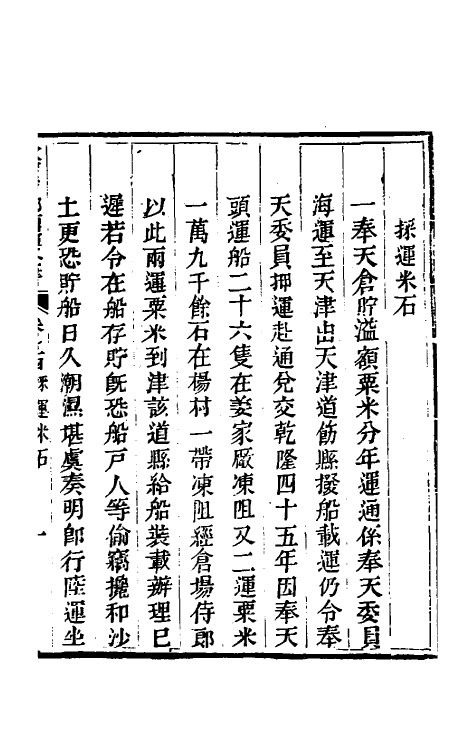 採運米石
一奉天倉貯溢額粟米分年運通係奉天委員
海運至天津出天津道飭縣撥船載運仍令奉
天委員押運赴通兌交乾隆四十五年因奉天
頭運船二十六隻在姜家厰凍阻又二運粟米
一萬九千餘石在楊村一帶凍阻經倉場侍郎
以此兩運粟米到津該道縣給船裝載辦理已
遲若令在船存貯旣恐船戸人等偷竊攙和沙
土更恐貯船日久潮濕堪虞奏明卽行陸運坐
採運米石 一